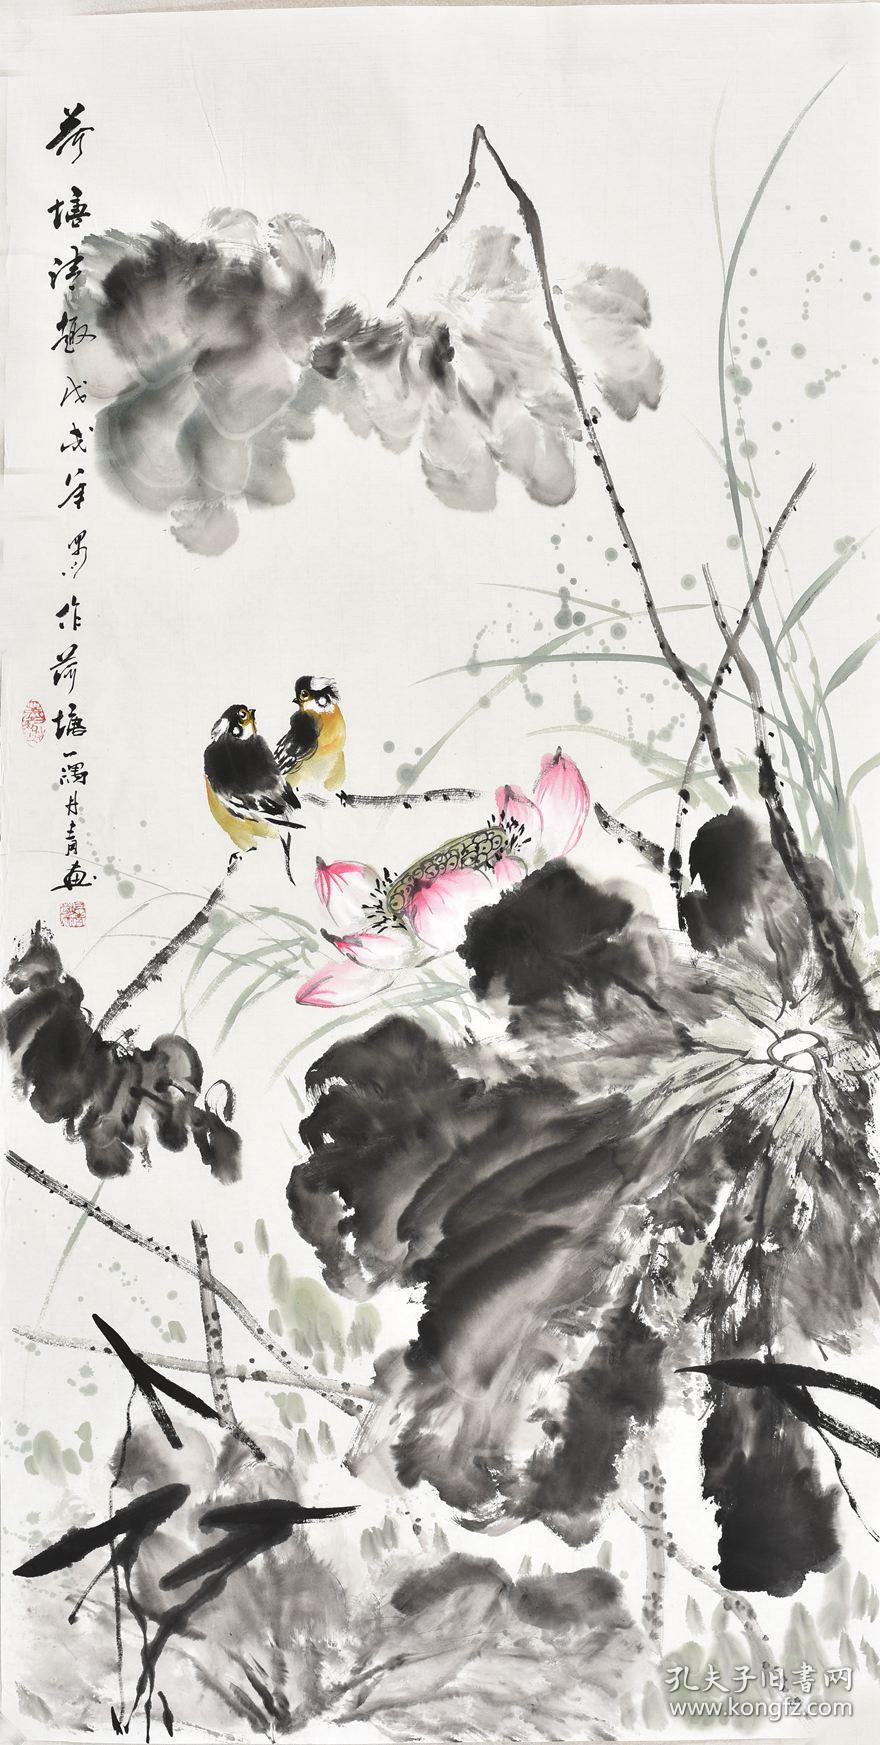 荷塘清趣戊戌年男作荷塘一隅丹青画
孔夫子旧书网
www.kongfz.com